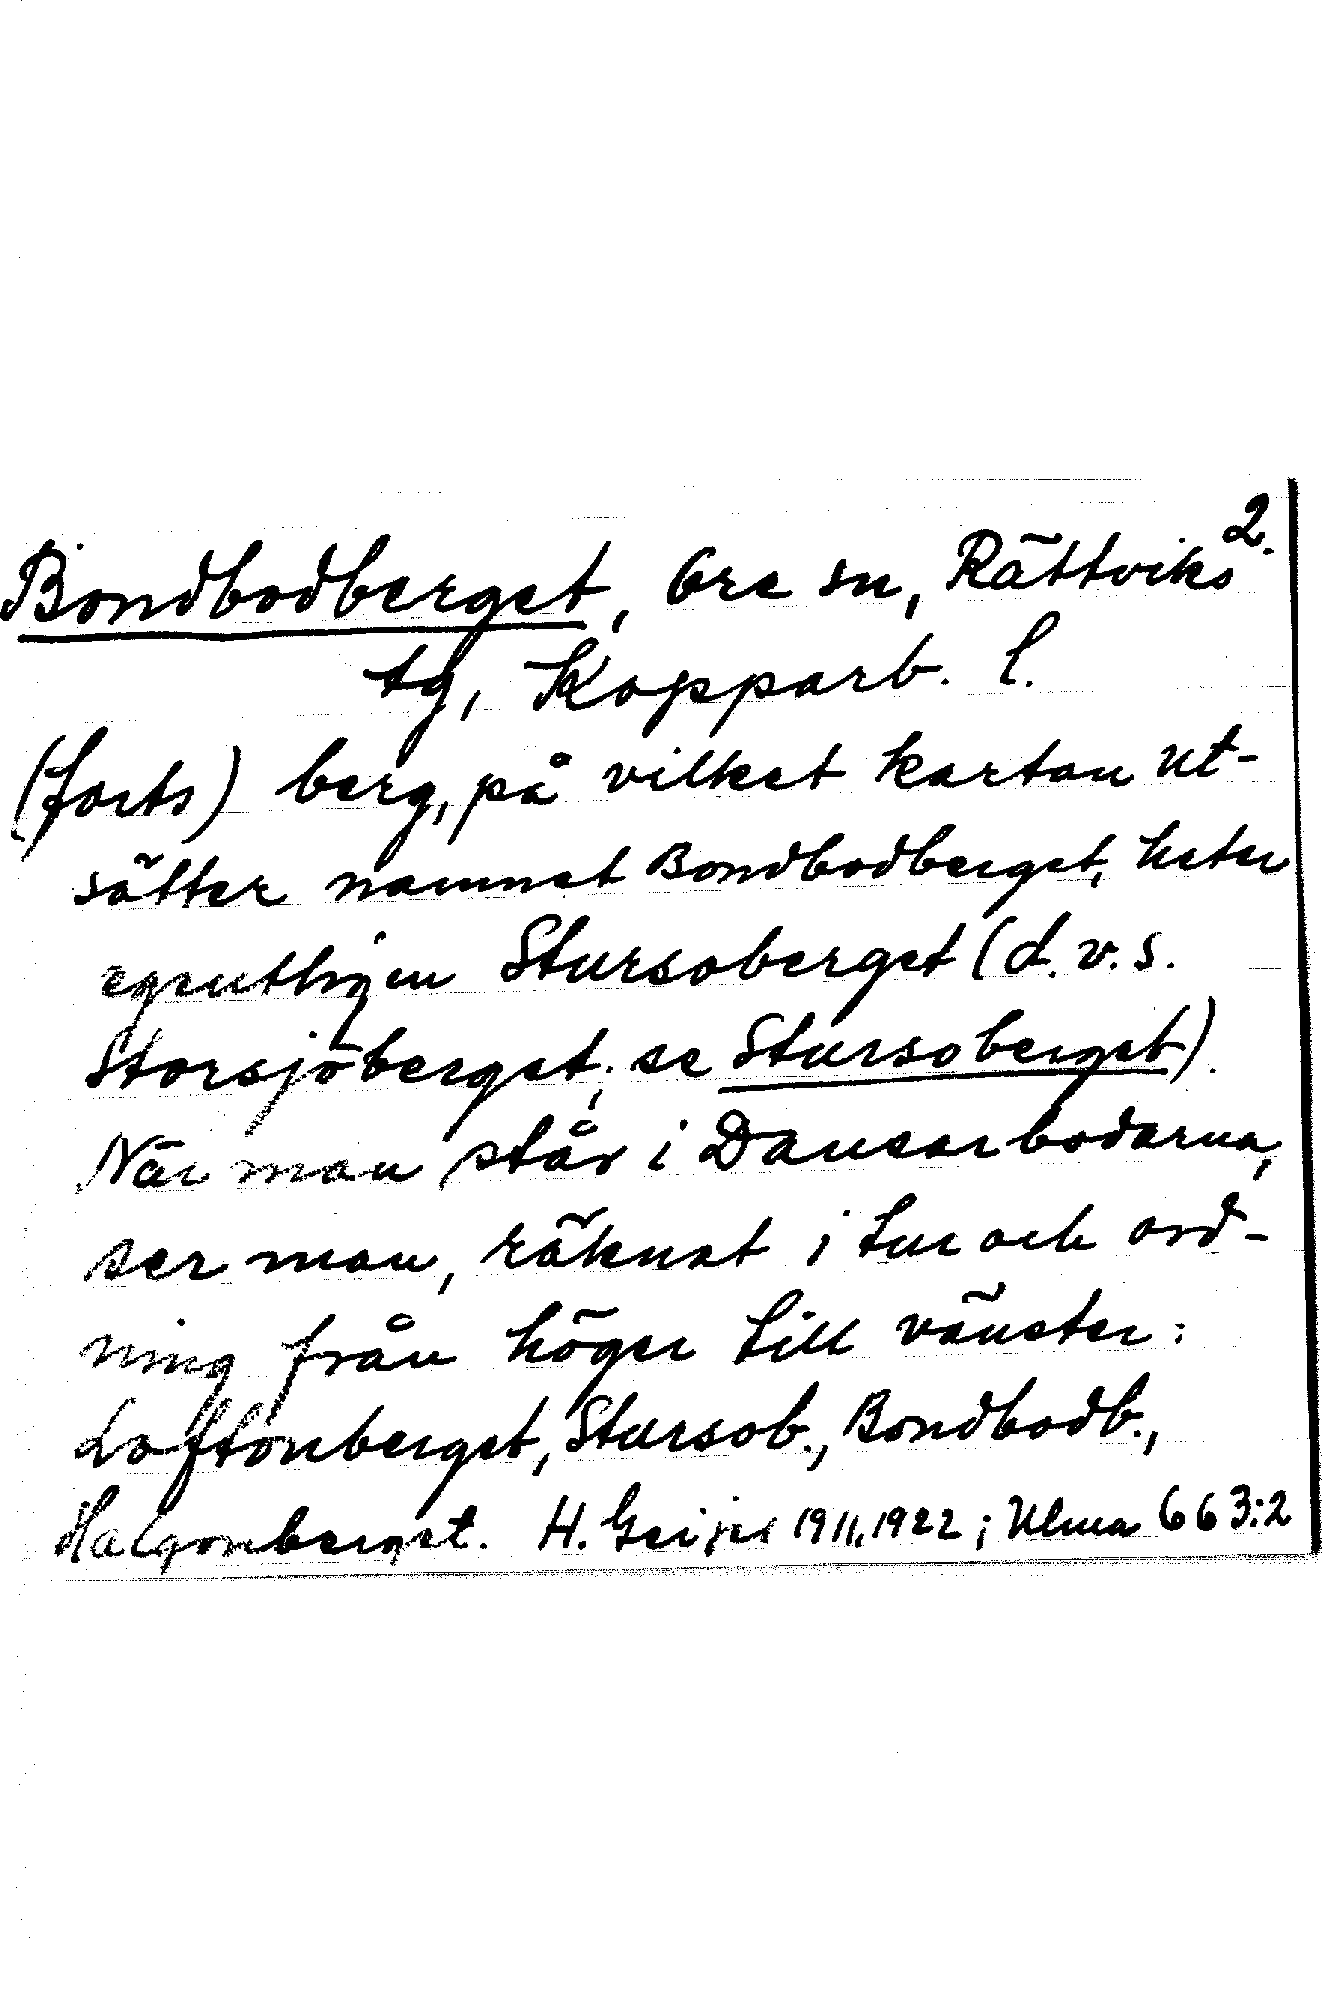 2.
Bondbodberget, Ore sn, Rättviks
tg, Kopparb. l.
(forts) berg, på vilket kartan ut-
sätter namnet Bondbodberget, heter
egentligen Stursoberget (d.v.s.
Storsjöberget; se Stursoberget).
När man står i Dansarbodarna,
ser man, räknat i tur och ord-
ning från höger till vänster:
Loftönberget, Stursob., Bondbodb.,
Halgonberget. H. Geijer 1911, 1922; Ulma 663:2